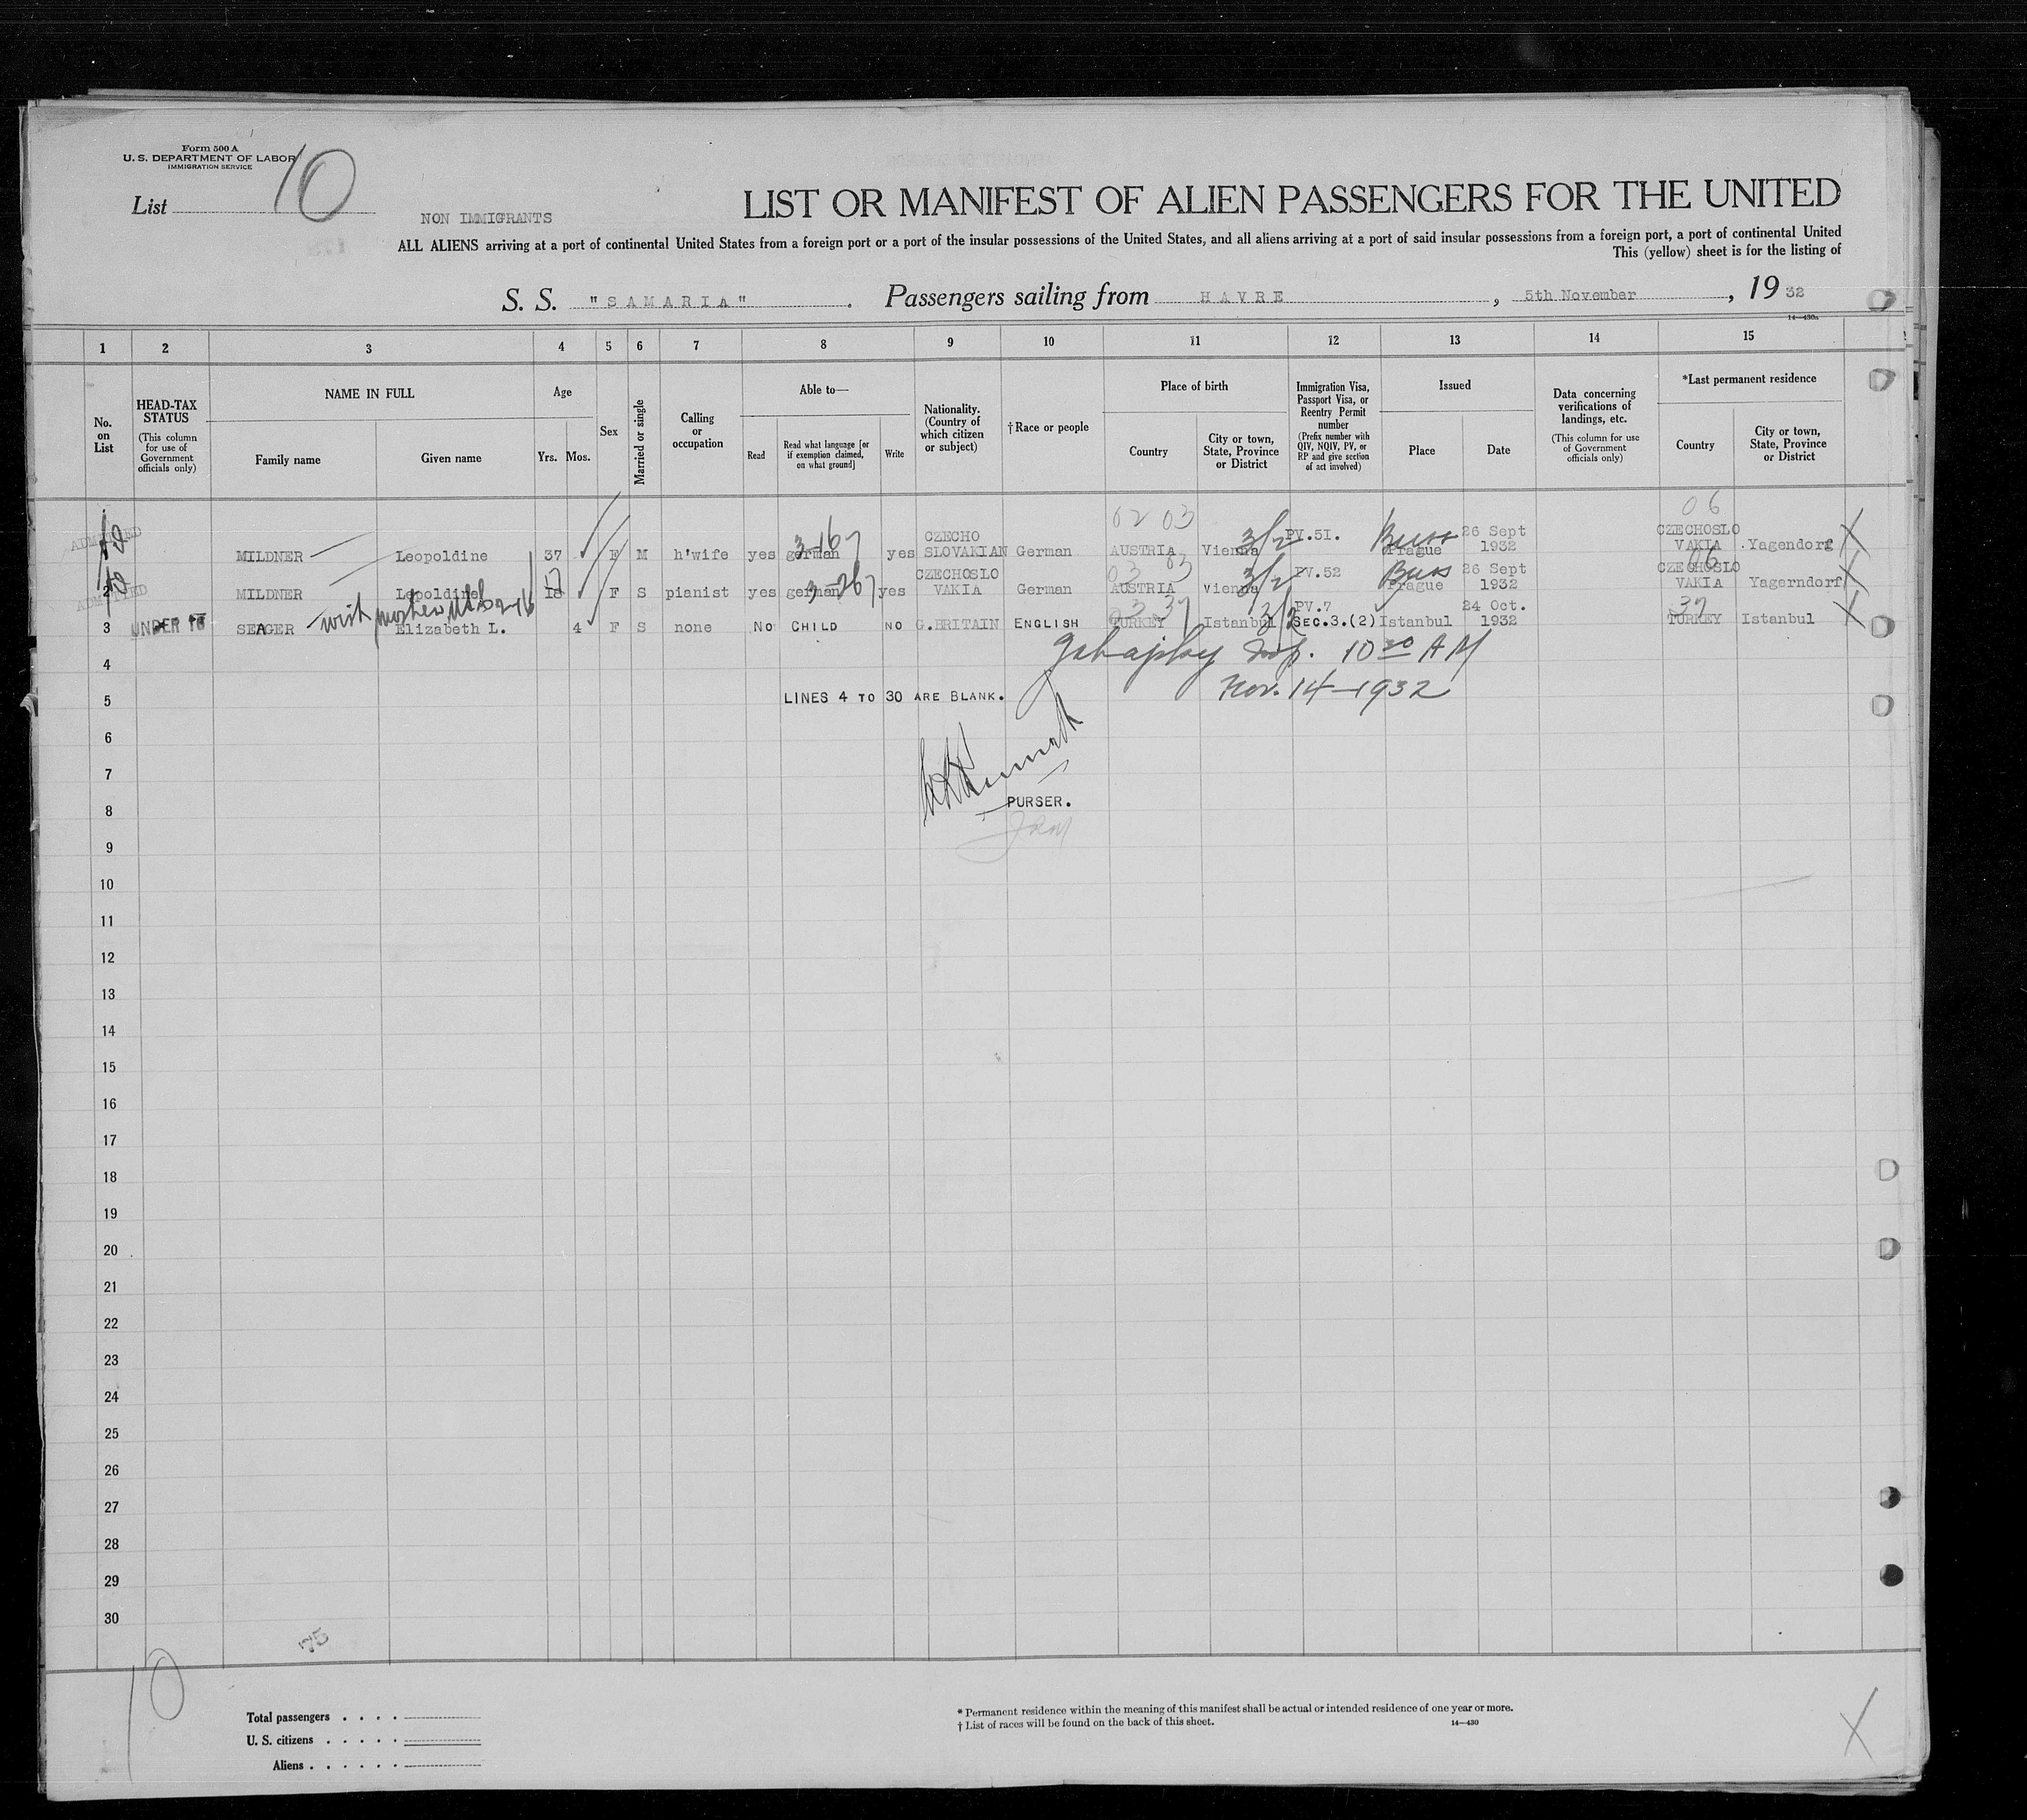 Form 500 A
U. S. DEPARTMENT OF LABOR
IMMIGRATION SERVICE
List 10
NON IMMIGRANTS
LIST OR MANIFEST OF ALIEN PASSENGERS FOR THE UNITED
ALL ALIENS arriving at a port of continental United States from a foreign port or a port of the insular possessions of the United States, and all aliens arriving at a port of said insular possessions from a foreign port, a port of continental United
This (yellow) sheet is for the listing of
S. S. "SAMARIA". Passengers sailing from HAVRE, 5th November, 1932
14—430a
1 2 3 4 5 6 7 8 9 10 11 12 13 14 15
No. on List
HEAD-TAX STATUS (This column for use of Government officials only)
NAME IN FULL
Family name
Given name
Age
Yrs. Mos.
Sex
Married or single
Calling or occupation
Able to—
Read
Read what language [or if exemption claimed, on what ground]
Write
Nationality. (Country of which citizen or subject)
†Race or people
Place of birth
Country
City or town, State, Province or District
Immigration Visa, Passport Visa, or Reentry Permit number (Prefix number with QIV, NQIV, PV, or RP and give section of act involved)
Issued
Place
Date
Data concerning verifications of landings, etc. (This column for use of Government officials only)
*Last permanent residence
Country
City or town, State, Province or District
02 03 06
ADMITTED MILDNER Leopoldine 37 F M h'wife yes german 3-16 yes CZECHO SLOVAKIAN German AUSTRIA Vienna 3/2 PV.5I. Prague 26 Sept 1932 CZECHOSLO VAKIA Yagendorf X
03 03 06
2 ADMITTED MILDNER Leopoldine 18 17 F S pianist yes german yes CZECHOSLO VAKIA German AUSTRIA Vienna 3/2 PV.52 Prague 26 Sept 1932 CZECHOSLO VAKIA Yagerndorf X
with mother
3 UNDER 16 SEAGER Elizabeth L. 4 F S none NO CHILD NO G.BRITAIN ENGLISH TURKEY Istanbul 3/2 PV.7 SEC.3.(2) Istanbul 24 Oct. 1932 37 TURKEY Istanbul X
4 Insp. 10 30 AM
5 LINES 4 TO 30 ARE BLANK. Nov. 14-1932
6
7
8 PURSER.
9
10
11
12
13
14
15
16
17
18
19
20
21
22
23
24
25
26
27
28
29
30
75
10
Total passengers
U. S. citizens
Aliens
* Permanent residence within the meaning of this manifest shall be actual or intended residence of one year or more.
† List of races will be found on the back of this sheet.
14—430
X